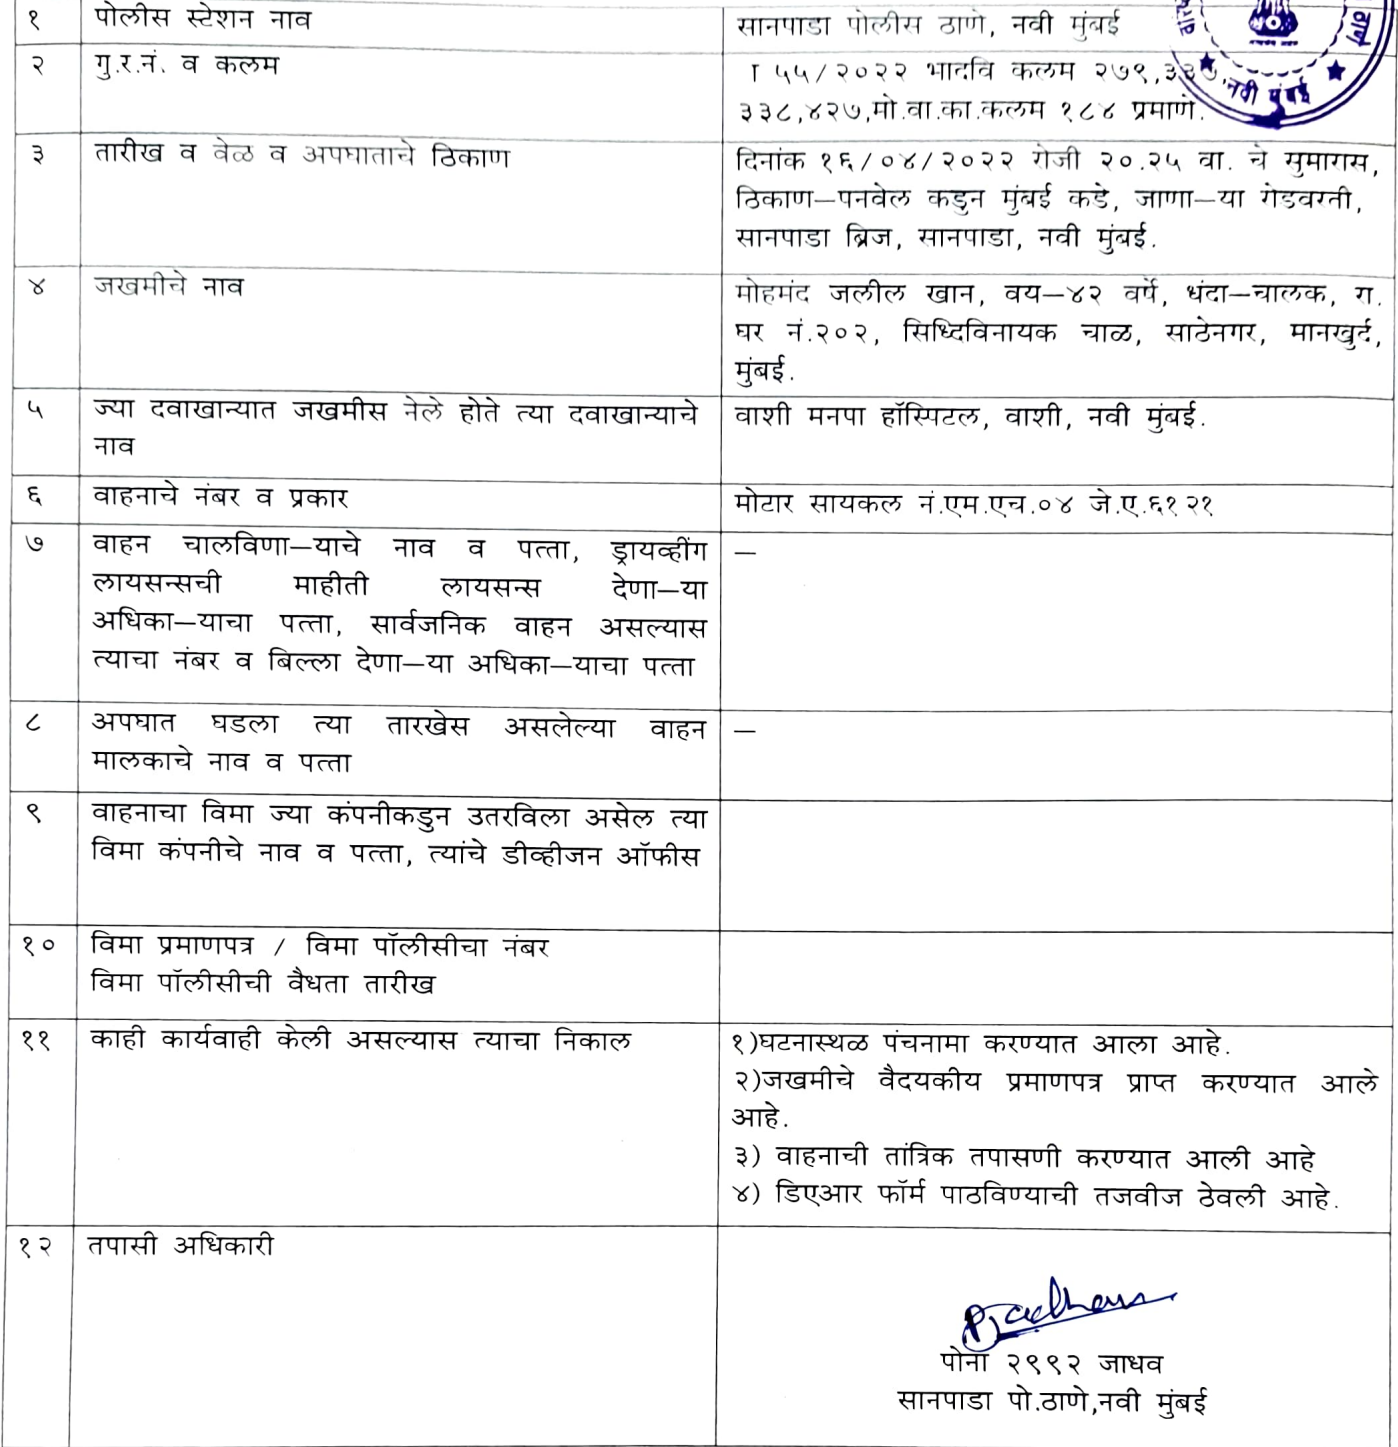 १ पोलीस स्टेशन नाव सानपाडा पोलीस ठाणे, नवी मुंबई
२ गु.र.नं. व कलम I ५५/२०२२ भादवि कलम २७९,३३७,
३३८,४२७,मो.वा.का.कलम १८४ प्रमाणे.
३ तारीख व वेळ व अपघाताचे ठिकाण दिनांक १६/०४/२०२२ रोजी २०.२५ वा. चे सुमारास,
ठिकाण—पनवेल कडुन मुंबई कडे, जाणा—या रोडवरती,
सानपाडा ब्रिज, सानपाडा, नवी मुंबई.
४ जखमीचे नाव मोहमंद जलील खान, वय—४२ वर्षे, धंदा—चालक, रा.
घर नं.२०२, सिध्दिविनायक चाळ, साठेनगर, मानखुर्द,
मुंबई.
५ ज्या दवाखान्यात जखमीस नेले होते त्या दवाखान्याचे वाशी मनपा हॉस्पिटल, वाशी, नवी मुंबई.
नाव
६ वाहनाचे नंबर व प्रकार मोटार सायकल नं.एम.एच.०४ जे.ए.६१२१
७ वाहन चालविणा—याचे नाव व पत्ता, ड्रायव्हींग —
लायसन्सची माहीती लायसन्स देणा—या
अधिका—याचा पत्ता, सार्वजनिक वाहन असल्यास
त्याचा नंबर व बिल्ला देणा—या अधिका—याचा पत्ता
८ अपघात घडला त्या तारखेस असलेल्या वाहन —
मालकाचे नाव व पत्ता
९ वाहनाचा विमा ज्या कंपनीकडुन उतरविला असेल त्या
विमा कंपनीचे नाव व पत्ता, त्यांचे डीव्हीजन ऑफीस
१० विमा प्रमाणपत्र / विमा पॉलीसीचा नंबर
विमा पॉलीसीची वैधता तारीख
११ काही कार्यवाही केली असल्यास त्याचा निकाल १)घटनास्थळ पंचनामा करण्यात आला आहे.
२)जखमीचे वैदयकीय प्रमाणपत्र प्राप्त करण्यात आले
आहे.
३) वाहनाची तांत्रिक तपासणी करण्यात आली आहे
४) डिएआर फॉर्म पाठविण्याची तजवीज ठेवली आहे.
१२ तपासी अधिकारी
पोना २९९२ जाधव
सानपाडा पो.ठाणे,नवी मुंबई
ठाणे
नवी मुंबई